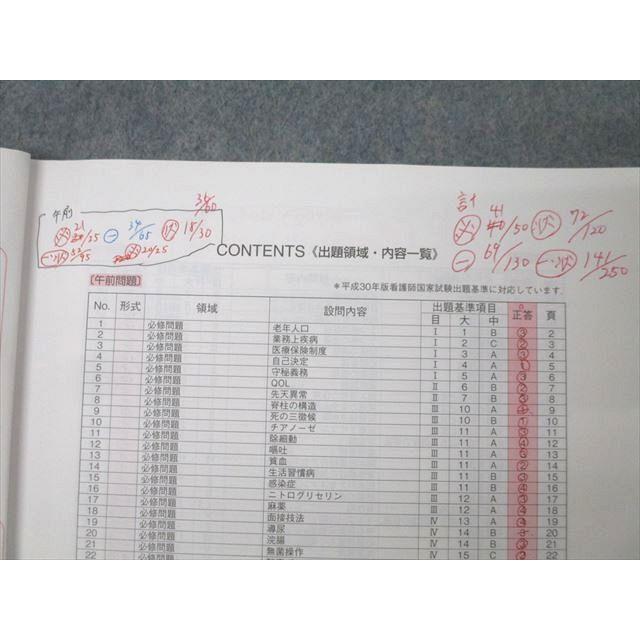 午前
36/60
必 21/25 一 34/65 状 15/30
計
必 41/50 状 72/120
一 69/130 一・状 141/250
CONTENTS《出題領域・内容一覧》
[午前問題]
＊平成30年版看護師国家試験出題基準に対応しています.
No. 形式 領域 設問内容 出題基準項目 正答 頁
目 大 中
1 必修問題 老年人口 Ⅰ 1 B ③ 2
2 必修問題 業務上疾病 Ⅰ 2 C ② 3
3 必修問題 医療保険制度 Ⅰ 3 A ③ 4
4 必修問題 自己決定 Ⅰ 4 A ① 5
5 必修問題 守秘義務 Ⅰ 5 A ③ 6
6 必修問題 QOL Ⅱ 6 B ② 7
7 必修問題 先天異常 Ⅱ 7 B 8
8 必修問題 脊柱の構造 Ⅲ 10 A 9
9 必修問題 死の三徴候 Ⅲ 10 B ① 10
10 必修問題 チアノーゼ Ⅲ 11 A ③ 11
11 必修問題 除細動 Ⅲ 11 A ④ 12
12 必修問題 嘔吐 Ⅲ 11 A 13
13 必修問題 貧血 Ⅲ 11 A ② 14
14 必修問題 生活習慣病 Ⅲ 11 B ③ 15
15 必修問題 感染症 Ⅲ 11 B ④ 16
16 必修問題 ニトログリセリン Ⅲ 12 A ③ 17
17 必修問題 麻薬 Ⅲ 12 A ④ 18
18 必修問題 面接技法 Ⅳ 13 A ④ 19
19 必修問題 導尿 Ⅳ 14 B 20
20 必修問題 浣腸 Ⅳ 14 B ③ 21
21 必修問題 無菌操作 Ⅳ 15 C ② 22
22 必修問題